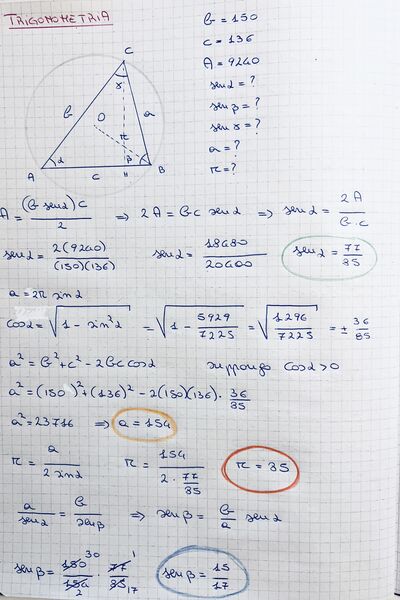 TRIGONOMETRIA
b = 150
c = 136
A = 9240
senα = ?
senβ = ?
senγ = ?
a = ?
r = ?
C
γ
b
O
a
r
α
β
A
C
H
B
A = (b senα) c / 2 ⇒ 2A = bc senα ⇒ senα = 2A / b·c
senα = 2(9240) / (150)(136) senα = 18480 / 20400 senα = 77 / 85
a = 2r sinα
cosα = √1 - sin²α = √1 - 5929 / 7225 = √1296 / 7225 = ± 36 / 85
a² = b² + c² - 2bc cosα suppongo cosα > 0
a² = (150)² + (136)² - 2(150)(136) · 36 / 85
a² = 23716 ⇒ a = 154
r = a / 2 sinα r = 154 / 2 · 77 / 85 r = 85
a / senα = b / senβ ⇒ senβ = b / a senα
senβ = 150 30 / 154 2 · 77 1 / 85 17 senβ = 15 / 17